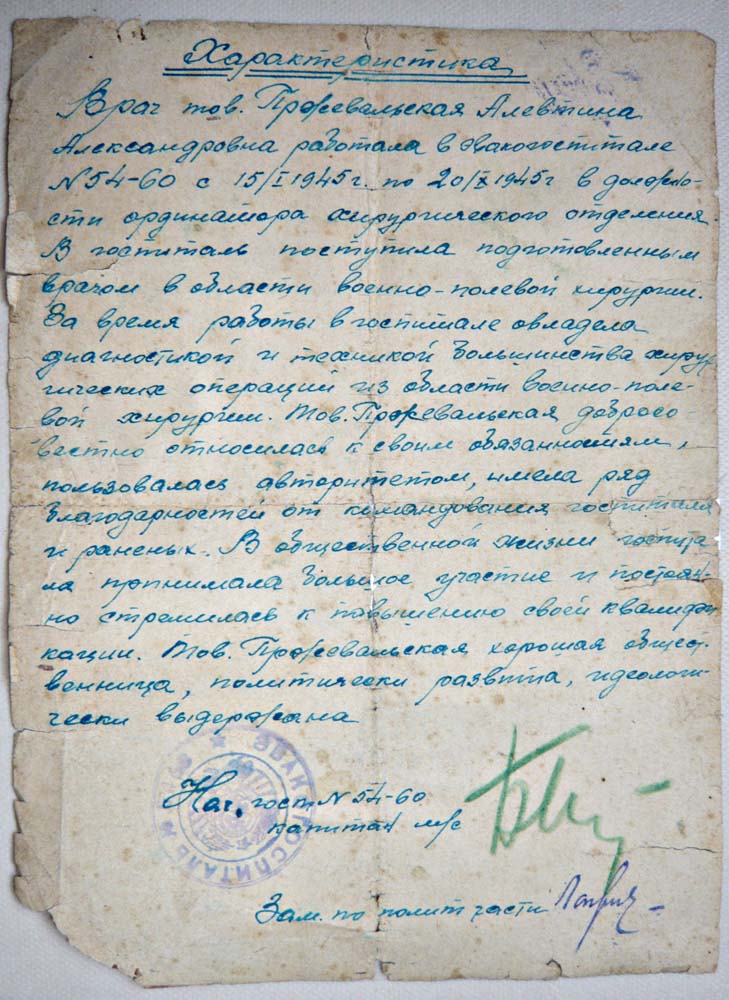 Характеристика
Врач тов. Пржевальская Алевтина
Александровна работала в эвакогоспитале
N 54-60 с 15/I 1945г. по 20/X 1945г в должно-
сти ординатора хирургического отделения.
В госпиталь поступила подготовленным
врачом в области военно-полевой хирургии.
За время работы в госпитале овладела
диагностикой и техникой большинства хирур-
гических операций из области военно-поле-
вой хирургии. Тов. Пржевальская добросо-
вестно относилась к своим обязанностям,
пользовалась авторитетом, имела ряд
благодарностей от командования госпиталя
и раненых. В общественной жизни госпита
ла принимала большое участие и постоян-
но стремилась к повышению своей квалифи
кации. Тов. Пржевальская хорошая общест-
венница, политически развита, идеологи-
чески выдержана
ЭВАКОГОСПИТАЛЬ
Нач. госп N 54-60
капитан м/с
Зам. по политчасти